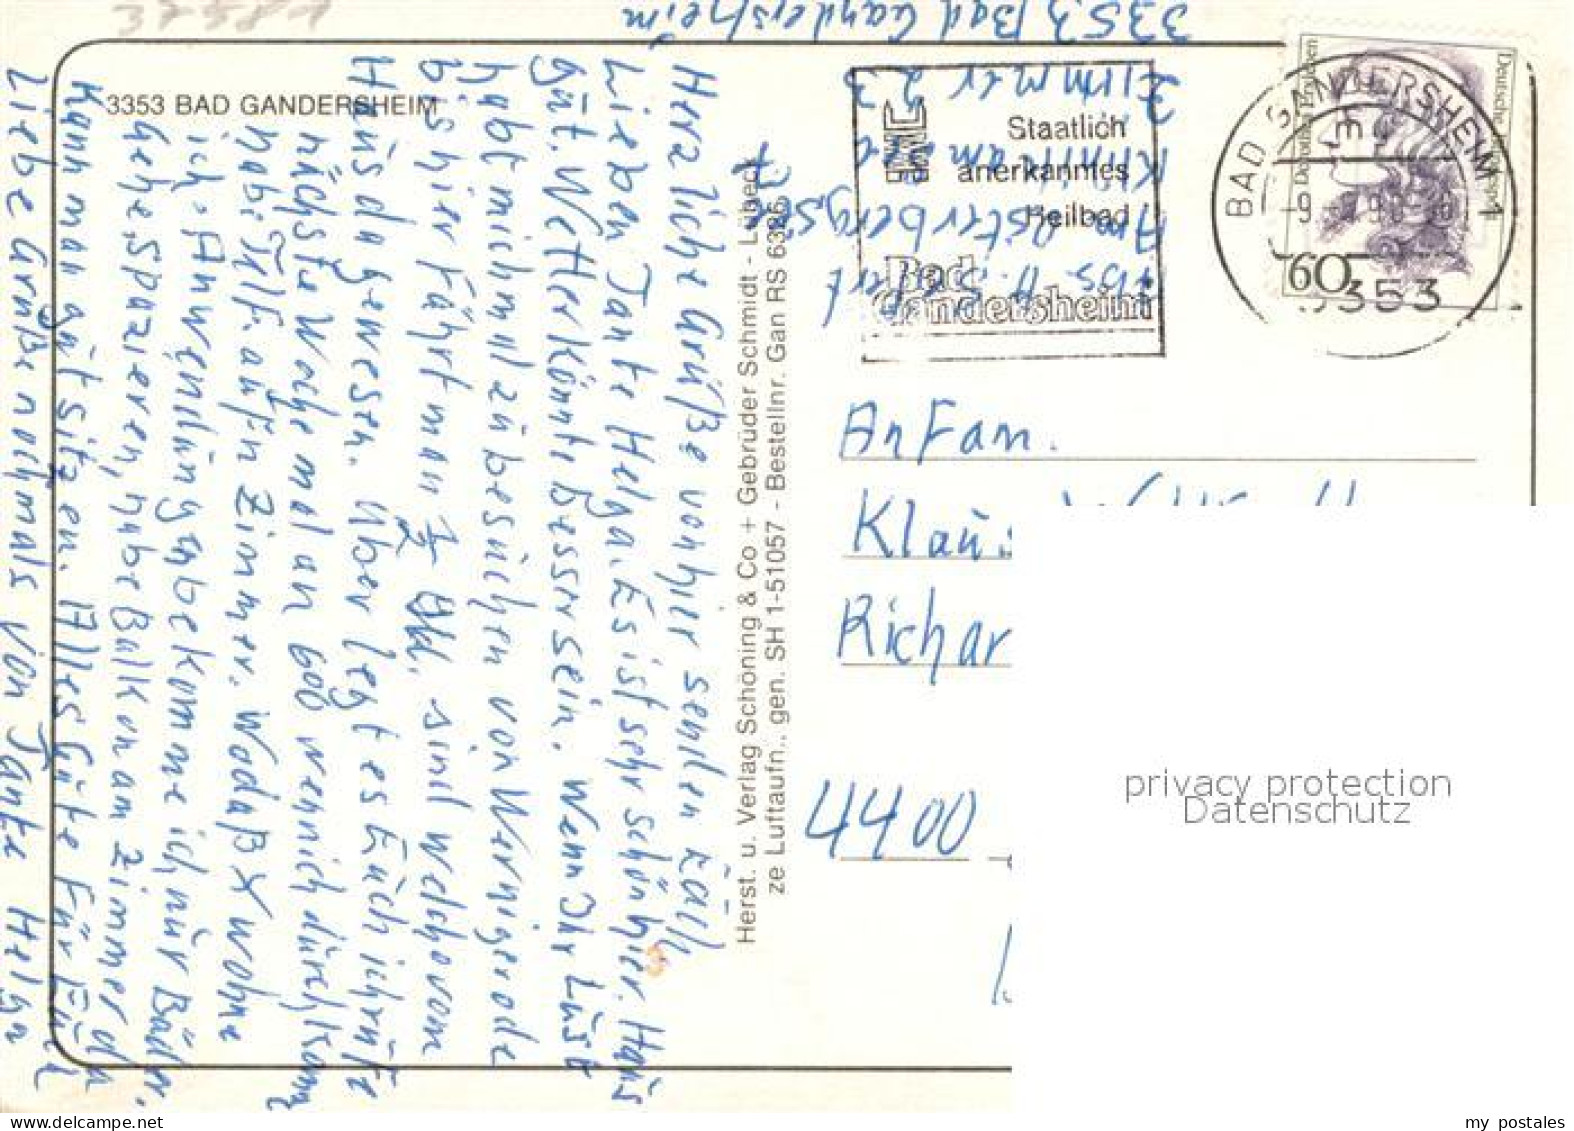 3353 BAD GANDERSHEIM
Herzliche Grüße von hier senden Euch
Lieben Tante Helga. Es ist sehr schön hier. Haus
Gut. Wetter könnte besser sein. Wenn Ihr Lust
habt mich mal zu besuchen von Wernigerode
bis hier fährt man 1/2 Std. sind welche vom
Haus da gewesen. Über legt es Euch ich rufe
nächste Woche mal an 600 wenn ich durch komm
habe Telf. auf'n Zimmer. Wo daß X wohne
ich. Anwendungen bekomme ich nur Bäder.
Gehe Spazieren, habe Balkon am Zimmer da
kann man gut sitzen. Alles Gute für Euch
Liebe Grüße nochmals von Tante Helga
Herst. u. Verlag Schöning & Co + Gebrüder Schmidt - Lübeck
ze Luftaufn., gen. SH 1-51057 - Bestellnr. Gan RS 6326
Abs. H.
Am Osterbergsee
Klinik am
Zimmer 23
3353 Bad Gandersheim
Staatlich
anerkanntes
Heilbad
Bad
Gandersheim
BAD GANDERSHEIM 1
3353
Deutsche Bundespost
60
An Fam.
Klaus
Richar
4400
privacy protection
Datenschutz
my postales